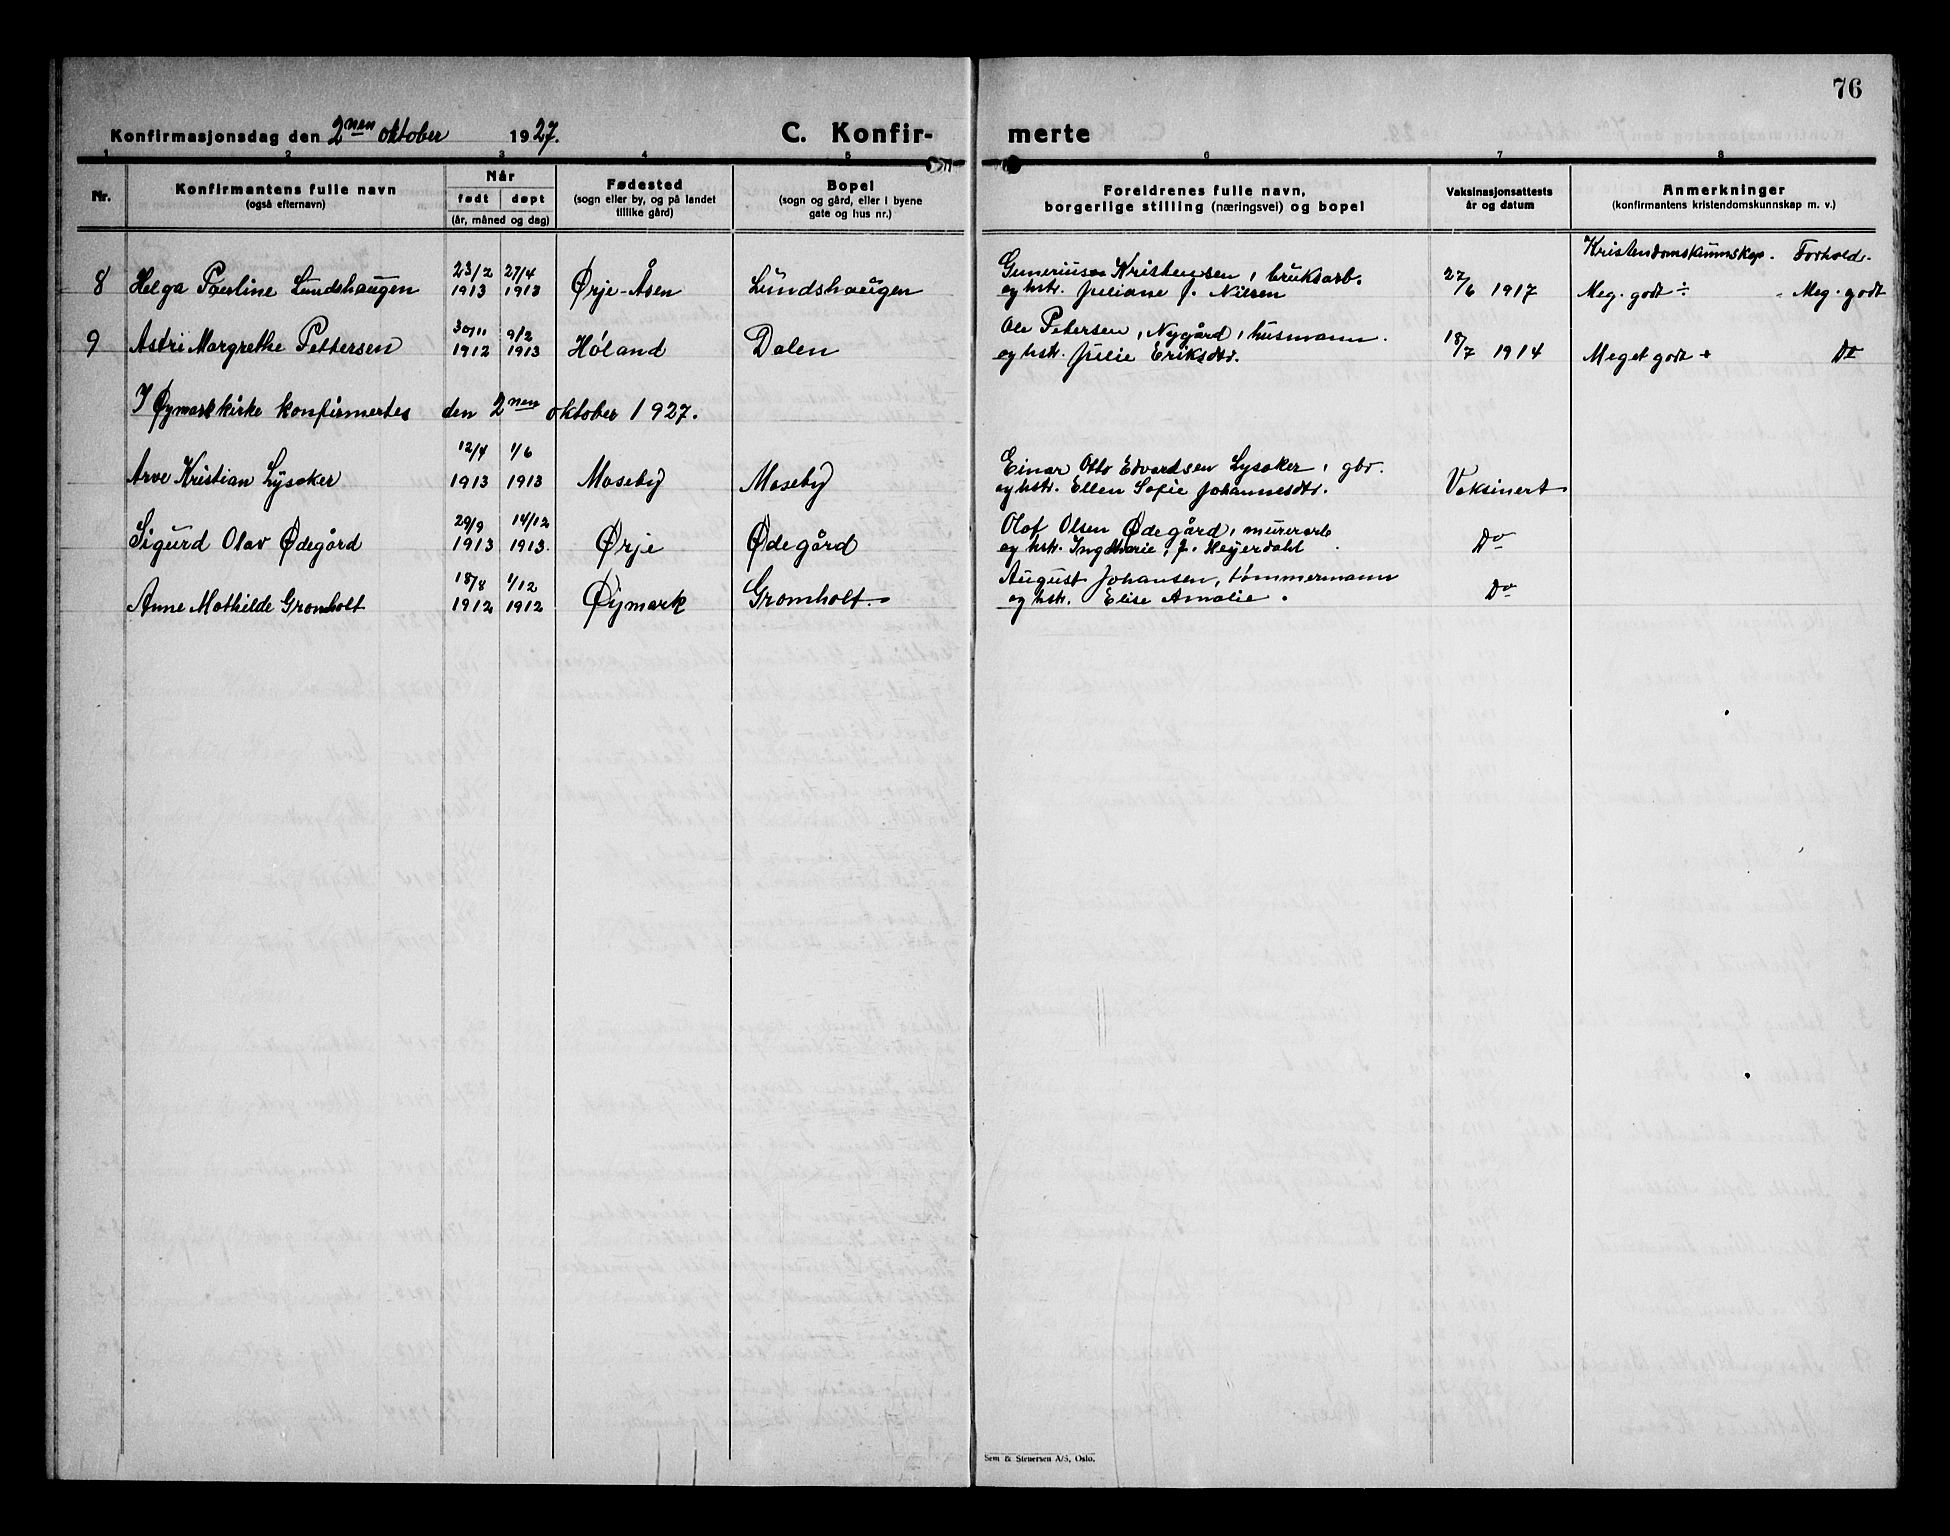 76
Konfirmasjonsdag den 2nen oktober 1927. C. Konfir- merte
1 2 3 4 5 6 7 8
Nr.
Konfirmantens fulle navn
(også efternavn)
Når
født døpt
(år, måned og dag)
Fødested
(sogn eller by, og på landet
tillike gård)
Bopel
(sogn og gård, eller i byene
gate og hus nr.)
Foreldrenes fulle navn,
borgerlige stilling (næringsvei) og bopel
Vaksinasjonsattests
år og datum
Anmerkninger
(konfirmantens kristendomskunnskap m. v.)
Kristendomskunnskap. Forhold.
23/2 27/4 Gunerius Kristensen, bruksarb.
8 Helga Pauline Lundshaugen 1913 1913 Ørje-Åsen Lundshaugen og hstr. Juliane f. Nilsen 27/6 1917 Meg. godt ÷ Meg. godt
30/11 9/2 Ole Petersen, Nygård, husmann.
9 Astri Margrethe Pettersen 1912 1913 Høland Dalen og hstr. Julie Eriksdtr. 18/7 1914 Meget godt + Do
I Øymark kirke konfirmertes den 2nen oktober 1927.
12/4 1/6 Einar Otto Edvardsen Lysaker, gbr.
Arve Kristian Lysaker 1913 1913 Moseby Moseby og hstr. Ellen Sofie Johannesdtr. Vaksinert
29/9 14/12 Olof Olsen Ødegård, murerarb
Sigurd Olav Ødegård 1913 1913. Ørje Ødegård og hstr. Inga Marie, f. Heyerdahl Do
18/8 1/12 August Johansen, tømmermann
Anne Mathilde Gromholt 1912 1912 Øymark Gromholt og hstr. Elise Amalie. Do
Sem & Stenersen A/S, Oslo.